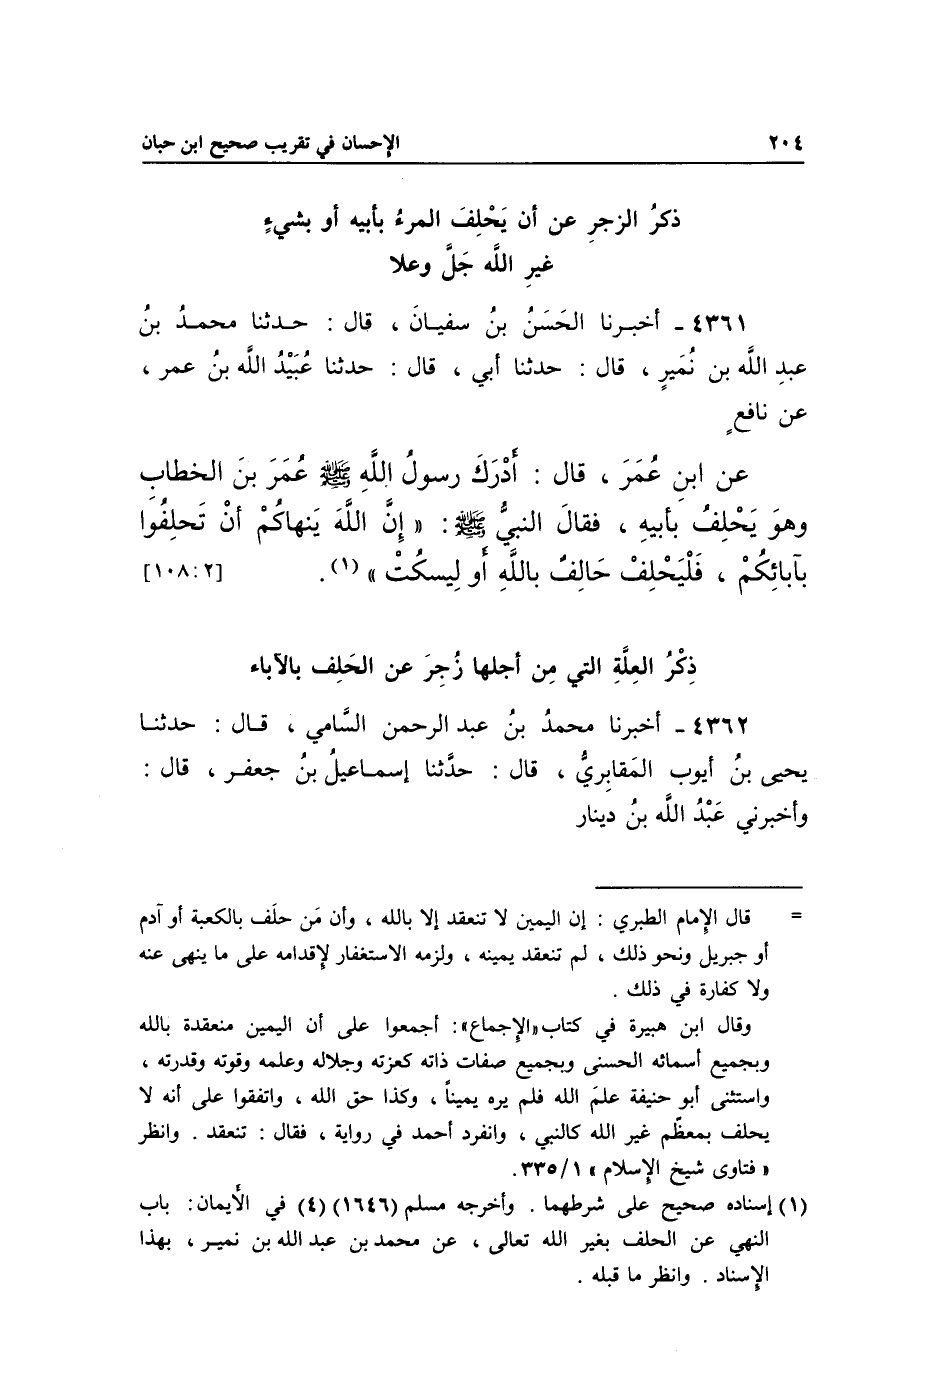 ٢٠٤ الإحسان في تقريب صحيح ابن حبان
ذكرُ الزجرِ عن أن يَحْلِفَ المرءُ بأبيه أو بشيءٍ
غيرِ اللَّه جَلَّ وعلا
٤٣٦١ ـ أخبـرنا الحَسَنُ بنُ سفيـانَ ، قال : حـدثنا محمـدُ بنُ
عبدِ اللَّه بن نُمَيرٍ ، قال : حدثنا أبي ، قال : حدثنا عُبَيْدُ اللَّه بنُ عمر ،
عن نافعٍ
عن ابنِ عُمَرَ ، قال : أَدْرَكَ رسولُ اللَّهِ ﷺ عُمَرَ بنَ الخطابِ
وهوَ يَحْلِفُ بأبيهِ ، فقالَ النبيُّ ﷺ : « إِنَّ اللَّهَ يَنهاكُمْ أنْ تَحلِفُوا
بآبائِكُمْ ، فَلْيَحْلِفْ حَالِفٌ باللَّهِ أَو لِيسكُتْ » (١) . [٢:١٠٨]
ذِكْرُ العِلَّةِ التي مِن أجلها زُجِرَ عن الحَلِف بالآباء
٤٣٦٢ ـ أخبرنا محمدُ بنُ عبد الرحمن السَّامي ، قـال : حدثنـا
يحيى بنُ أيوب المَقابِريُّ ، قال : حدَّثنا إسمـاعيلُ بنُ جعفـر ، قال :
وأخبرني عَبْدُ اللَّه بنُ دينار
= قال الإمام الطبري : إن اليمين لا تنعقد إلا بالله ، وأن مَن حلَف بالكعبة أو آدم
أو جبريل ونحو ذلك ، لم تنعقد يمينه ، ولزمه الاستغفار لإقدامه على ما ينهى عنه
ولا كفارة في ذلك .
وقال ابن هبيرة في كتاب «الإجماع»: أجمعوا على أن اليمين منعقدة بالله
وبجميع أسمائه الحسنى وبجميع صفات ذاته كعزته وجلاله وعلمه وقوته وقدرته ،
واستثنى أبو حنيفة علمَ الله فلم يره يميناً ، وكذا حق الله ، واتفقوا على أنه لا
يحلف بمعظَّم غير الله كالنبي ، وانفرد أحمد في رواية ، فقال : تنعقد . وانظر
« فتاوى شيخ الإسلام » ١/ ٣٣٥.
(١) إسناده صحيح على شرطهما . وأخرجه مسلم (١٦٤٦) (٤) في الأيمان: باب
النهي عن الحلف بغير الله تعالى ، عن محمد بن عبد الله بن نميـر ، بهذا
الإسناد . وانظر ما قبله .